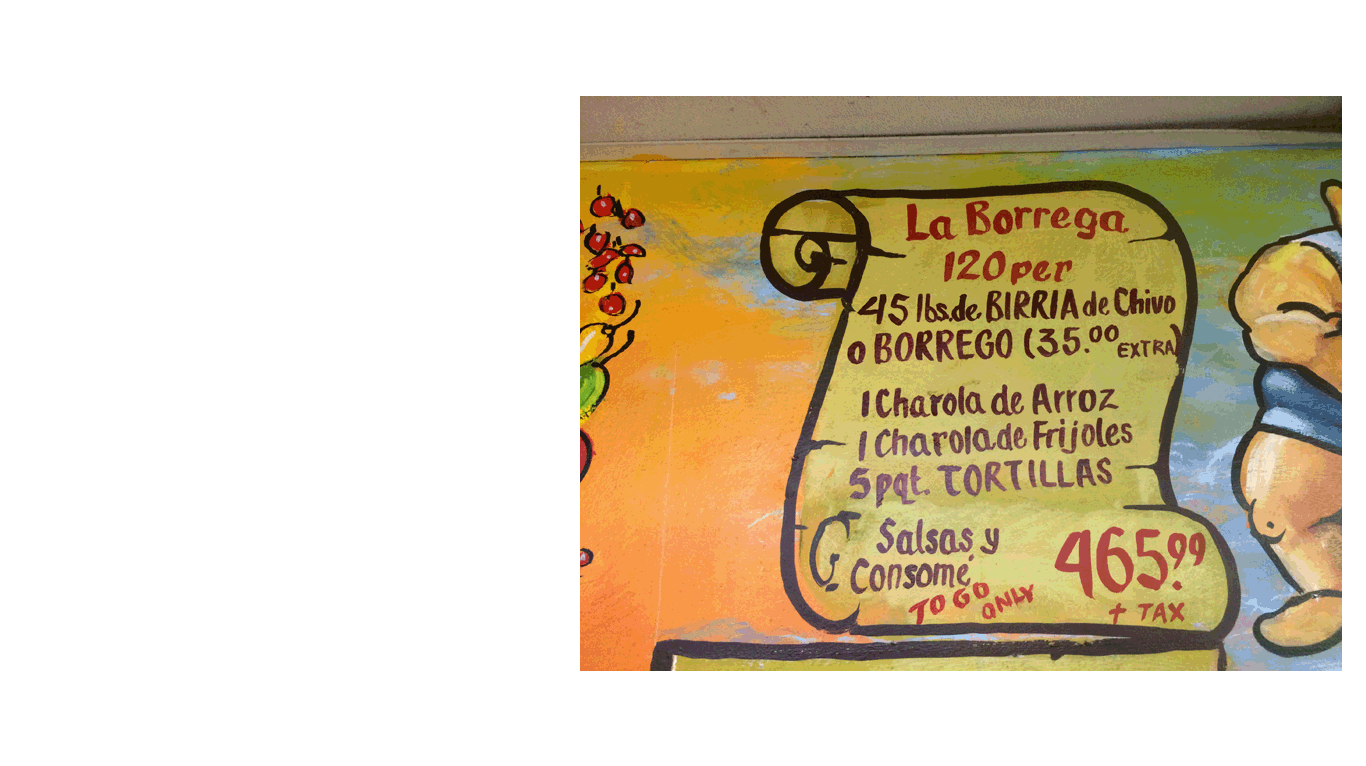 La Borrega
120 per
45 lbs.de BIRRIA de Chivo
o BORREGO (35.00 EXTRA)
1 Charola de Arroz
1 Charola de Frijoles
5 pqt. TORTILLAS
Salsas y
Consome
TO GO ONLY
465.99
+ TAX